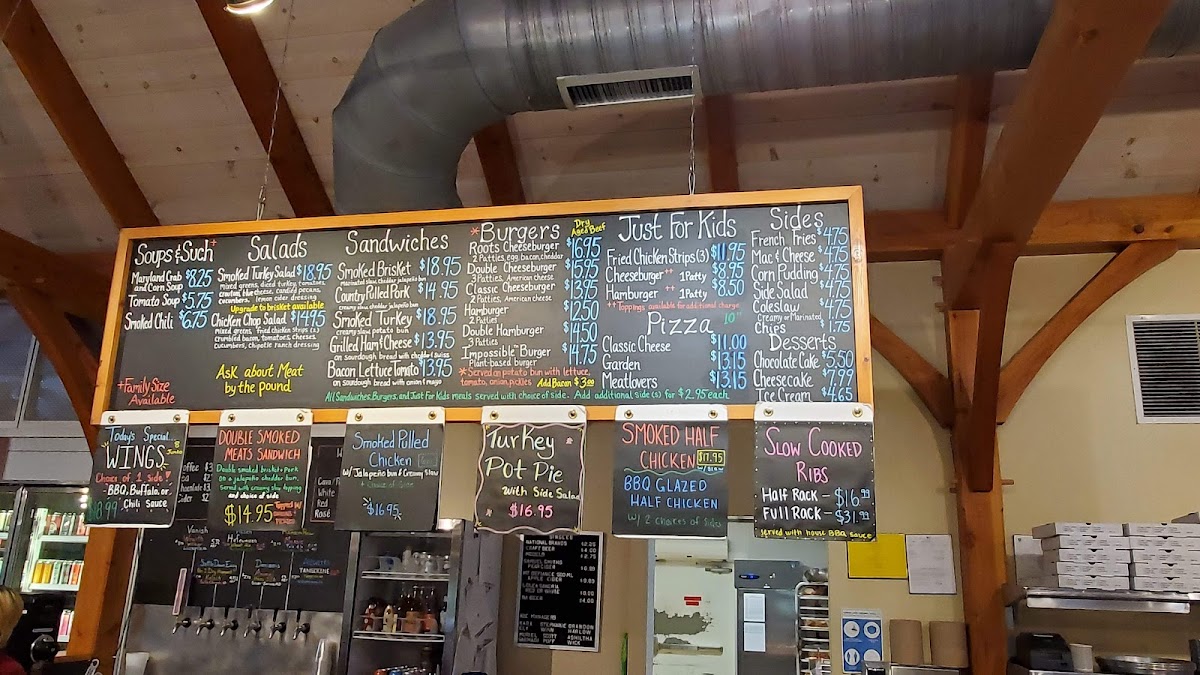 Soups & Such+
Maryland Crab and Corn Soup $8.25
Tomato Soup $5.75
Smoked Chili $6.75
+Family Size
Available
Salads
Smoked Turkey Salad $18.95
Mixed greens, diced turkey, tomatoes,
cranberries, blue cheese, candied pecans,
cucumbers, lemon cider dressing
Upgrade to brisket available
Chicken Chop Salad $14.95
Mixed greens, fried chicken strips (2)
crumbled bacon, tomatoes, cheeses,
cucumbers, chipotle ranch dressing
Ask about Meat
by the pound
Sandwiches
Smoked Brisket $18.95
Country Pulled Pork $14.95
Smoked Turkey $18.95
creamy slaw, potato bun
Grilled Ham & Cheese $13.95
on sourdough bread with cheddar & Swiss
Bacon Lettuce Tomato $13.95
on sourdough bread with onion & mayo
*Burgers
Dry
Aged Beef
Roots Cheeseburger $16.95
2 Patties, egg, bacon, cheddar
Double Cheeseburger $15.95
3 Patties, American cheese
Classic Cheeseburger $13.95
2 Patties, American cheese
Hamburger $12.50
2 Patties
Double Hamburger $14.50
3 Patties
Impossible Burger $14.75
Plant-based burger
*Served on potato bun with lettuce,
tomato, onion, pickles Add Bacon $3.00
Just For Kids
Fried Chicken Strips (3) $11.95
Cheeseburger++ 1 Patty $8.95
Hamburger ++ 1 Patty $8.50
++Toppings available for additional charge
Pizza 10"
Classic Cheese $11.00
Garden $13.15
Meatlovers $13.15
Sides
French Fries $4.75
Mac & Cheese $4.75
Corn Pudding $4.75
Side Salad $4.75
Coleslaw $4.75
Creamy or Marinated
Chips $1.75
Desserts
Chocolate Cake $5.50
Cheesecake $7.99
Ice Cream $4.65
All Sandwiches, Burgers, and Just For Kids meals served with choice of side. Add additional side(s) for $2.95 each
Today's Special...
WINGS 8 Jumbo
Choice of 1 side!
-BBQ, Buffalo, or
Chili Sauce
DOUBLE SMOKED
MEATS SANDWICH
Double smoked brisket & pork
on a jalapeño cheddar bun,
served with creamy slaw topping
and choice of side
$14.95
Smoked Pulled
Chicken
w/ Jalapeño bun & Creamy Slaw
+ Choice of Side
$16.95
Turkey
Pot Pie
With Side Salad
$16.95
SMOKED HALF
CHICKEN $17.95
BBQ GLAZED
HALF CHICKEN
w/ 2 choices of sides
Slow Cooked
Ribs
Half Rack - $16.99
Full Rack - $31.99
served with house BBQ sauce
NATIONAL BRANDS
CRAFT BEER